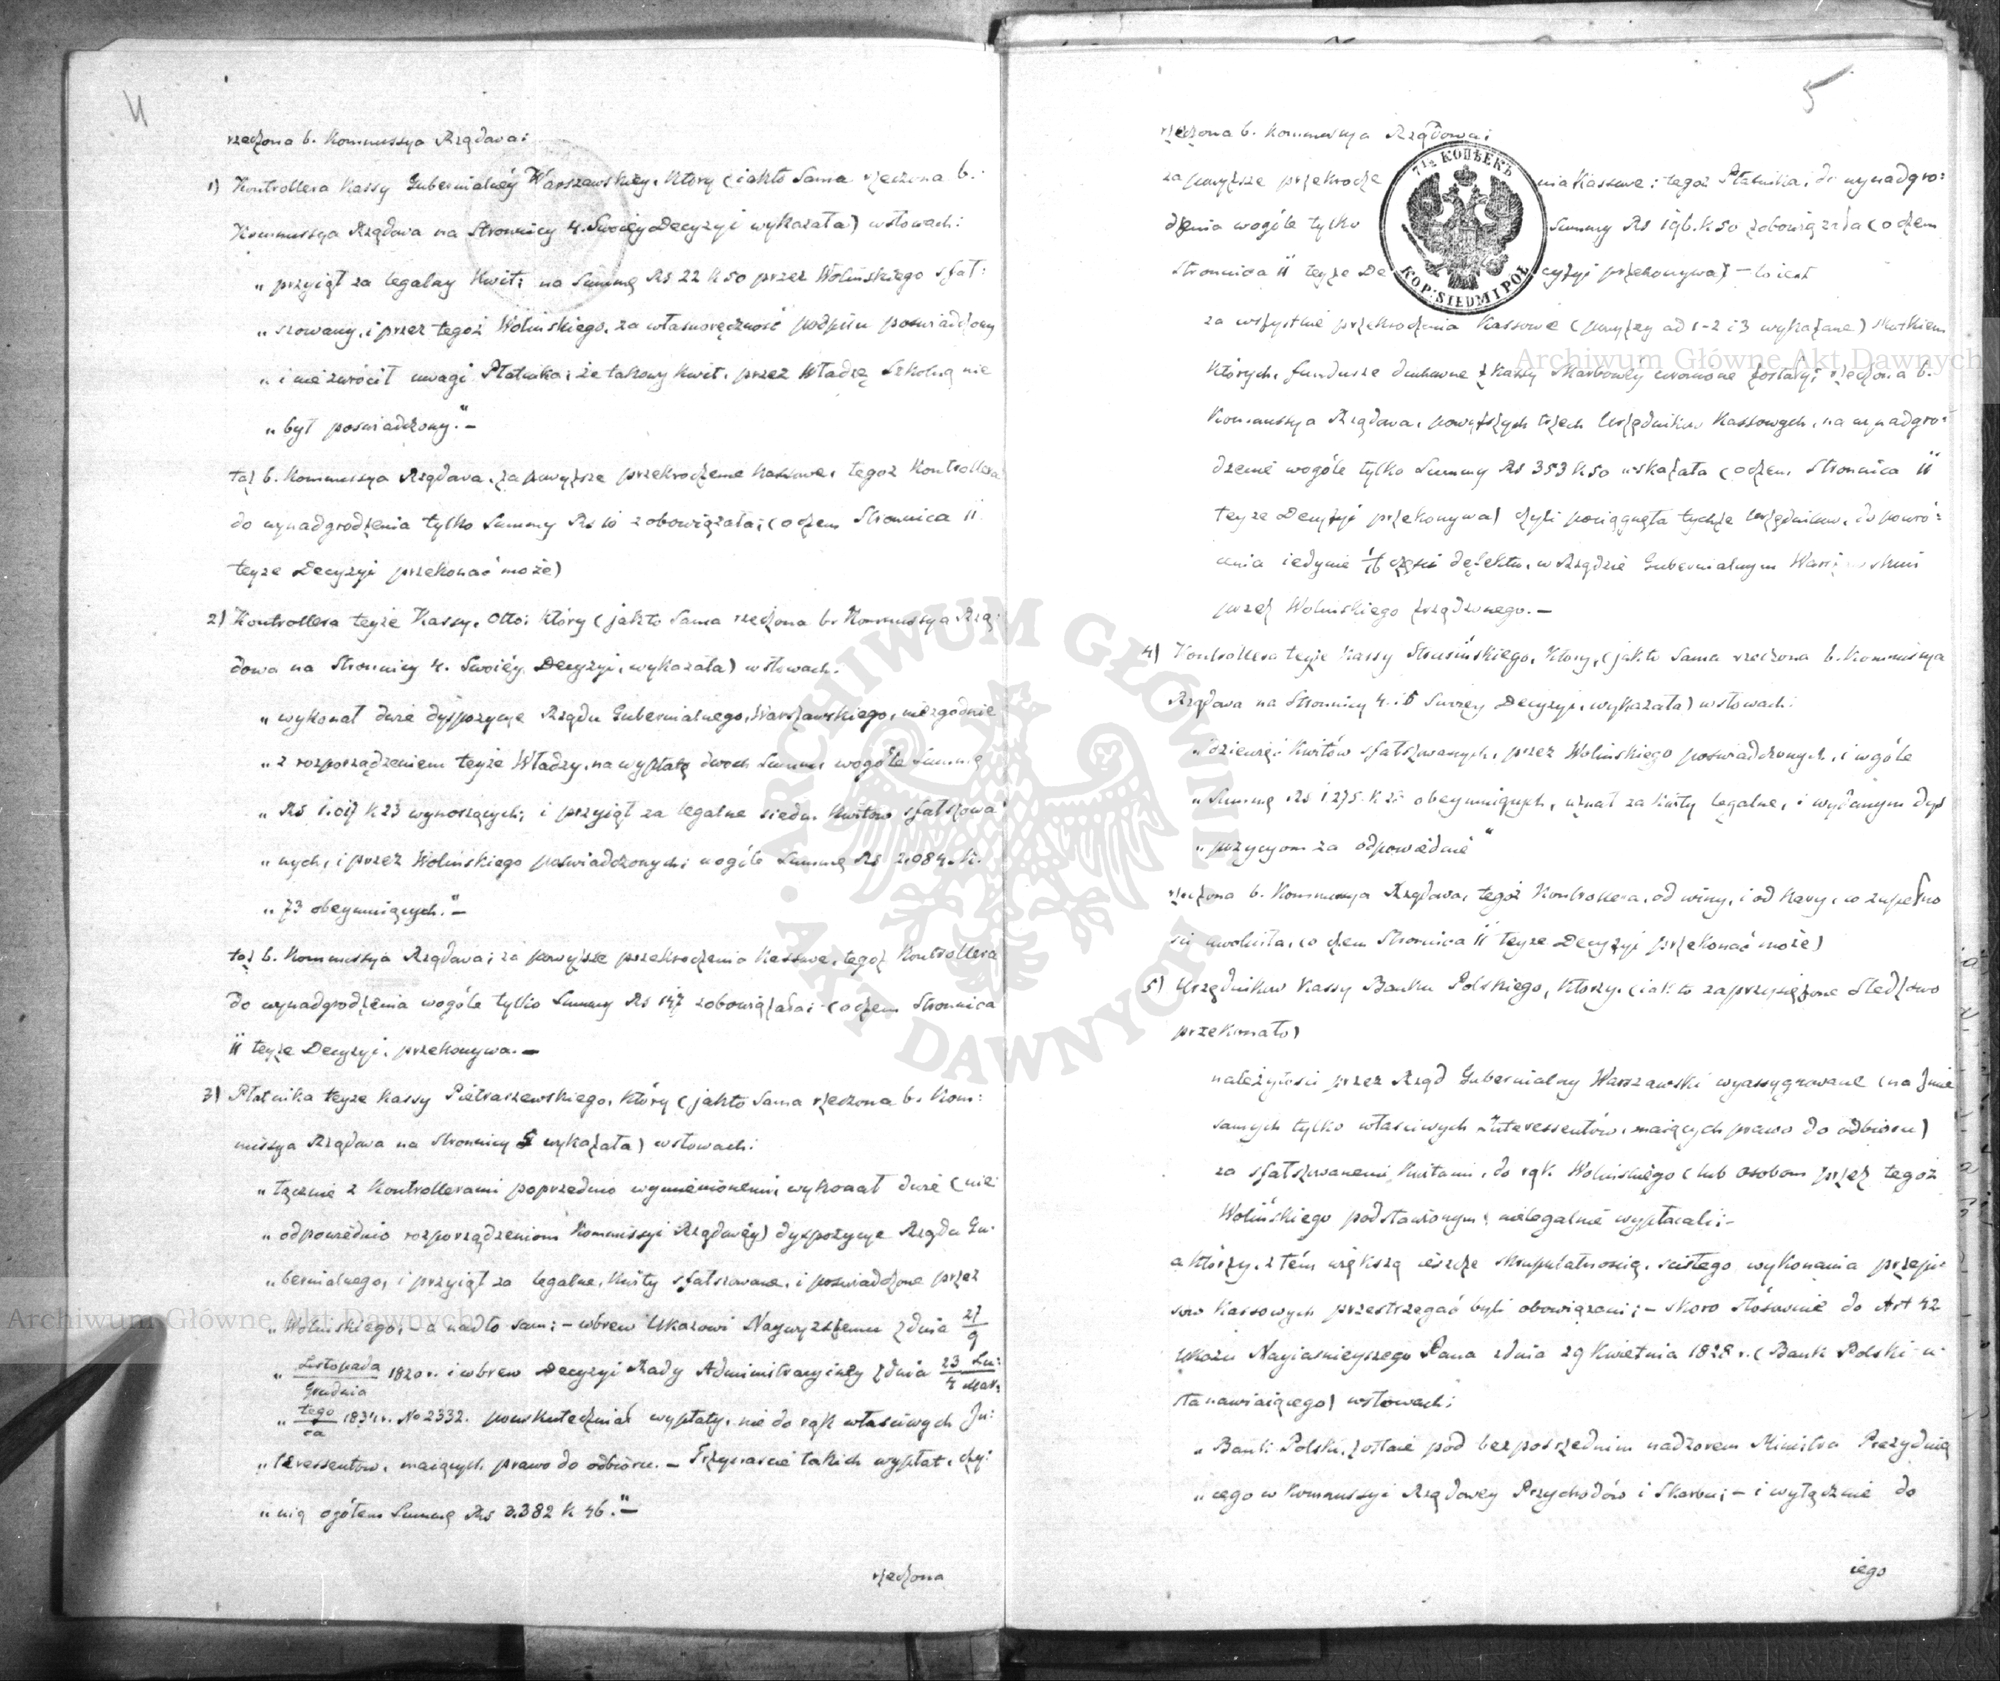 4
rzeczona b. Kommissya Rządowa:
1) Kontrollera Kassy Gubernialnéy Warszawskiéy, który (iakto Sama rzeczona b.
Kommissya Rządowa na Stronnicy 4. Swoiéy Decyzyi wykazała) wsłowach:
„ przyiął za legalny Kwit, na Summę Rs 22 k 50 przez Wolińskiego sfał:
„ szowany, i przez tegoż Wolińskiego, za własnoręczność podpisu poswiadczony
„ i nie zwrócił uwagi Płatnika, że takowy Kwit, przez Władzę Szkolną nie
„ był poswiadczony." –
taż b. Kommissya Rządowa, za powyższe przekroczenie Kassowe, tegoż Kontrollera
do wynadgrodzenia tylko Summy Rs 10 zobowiązała; (o czem Stronnica 11
teyże Decyzyi przekonać może)
2) Kontrollera teyże Kassy, Otto; który (jakto Sama rzeczona b. Kommissya Rzą:
dowa na Stronnicy 4. Swoiéy Decyzyi, wykazała) wsłowach.
„ wykonał dwie dyspozycye Rządu Gubernialnego, Warszawskiego, niezgodnie
„ z rozporządzeniem teyże Władzy, na wypłatę dwóch Summ wogóle Summę
„ Rs 1.017 k 23 wynoszących; i przyiął za legalne siedm Kwitów sfałszowa
„ nych, i przez Wolińskiego poświadczonych; wogóle Summę Rs 2.084. k.
„ 73 obeymuiących." –
taż b. Kommissya Rządowa; za powyższe przekroczenia Kassowe, tegoż Kontrollera
do wynadgrodzenia wogóle tylko Summy Rs 147 zobowiązała; (o czem Stronnica
11 teyże Decyzyi, przekonywa. –
3) Płatnika teyże Kassy Pietraszewskiego, który (jakto Sama rzeczona b. Kom:
missya Rządowa na Stronnicy 5 wykazała) wsłowach:
„ łącznie z Kontrollerami poprzednio wymienionemi, wykonał dwie (nie
„ odpowiednio rozporządzeniom Kommissyi Rządowéy) dyspozycye Rządu Gu:
„ bernialnego, i przyiął za legalne, Kwity sfałszowane, i poswiadczone przez
„ Wolińskiego, – a nadto sam; – wbrew Ukazowi Naywyższemu z dnia 27/9
„ Listopada/Grudnia 1820 r. i wbrew Decyzyi Rady Administracyinéy z dnia 23 Lu:/4 Mar:
„ tego/ca 1834 r. No 2332. powskuteczniał wypłaty, nie do rąk właściwych In:
„ teressentów, maiących prawo do odbioru. – Trzynaście takich wypłat, czy:
„ nią ogółem Summę Rs 3.382 k 46." –
rzeczona
5
rzeczona b. Kommissya Rządowa;
za powyższe przekrocze nia Kassowe; tegoż Płatnika, do wynadgro:
dzenia wogóle tylko Summy Rs 196. k 50 zobowiązała (o czem
Stronnica 11 teyże De cyzyi przekonywa) – to iest
7½ КОПѢЕКЪ
KOP: SIEDM I POŁ
za wszystkie przekroczenia Kassowe (powyżey ad 1-2 i 3 wykazane) skutkiem
których, fundusze duchowne z Kassy Skarbowéy uronione zostały; rzeczona b.
Kommissya Rządowa, powyższych trzech Urzędników Kassowych, na wynadgro:
dzenie wogóle tylko Summy Rs 353 k 50 wskazała (o czem Stronnica 11
teyże Decyzyi przekonywa) czyli pociągnęła tychże Urzędników, do powró:
cenia iedynie części defektu, w Rządzie Gubernialnym Warszawskim
przez Wolińskiego zrządzonego. –
4) Kontrollera teyże Kassy Strusińskiego, który, (jakto Sama rzeczona b. Kommissya
Rządowa na Stronnicy 4. i 5 Swoiey Decyzyi, wykazała) wsłowach:
„ dziewięć Kwitów sfałszowanych, przez Wolińskiego poswiadczonych, i wogóle
„ Summę Rs 1275. k obeymuiących, uznał za Kwity legalne, i wydanym dys
„ pozycyom za odpowiednie"
rzeczona b. Kommissya Rządowa, tegoż Kontrollera, od winy, i od Kary, w zupełno
ści uwolniła, (o czem Stronnica 11 teyże Decyzyi przekonać może)
5) Urzędników Kassy Banku Polskiego, którzy, (iak to zaprzysiężone Śledztwo
przekonało)
należytości przez Rząd Gubernialny Warszawski wyassygnowane (na Imie
samych tylko właściwych Interessentów, maiących prawo do odbioru)
za sfałszowanemi Kwitami, do rąk Wolińskiego (lub osobom przez tegoż
Wolińskiego podstawionym; nielegalnie wypłacali; –
a którzy, z tém większą ieszcze skrupulatnością, ścisłego wykonania przepi:
sów Kassowych przestrzegać byli obowiązani; – skoro stósownie do Art 42
Ukazu Nayiaśnieyszego Pana z dnia 29 Kwietnia 1828 r. (Bank Polski u:
stanawiaiącego) wsłowach;
„ Bank Polski, zostaie pod bezpośrednim nadzorem Ministra Prezyduią
„ cego w Kommissyi Rządowey Przychodów i Skarbu; – i wyłącznie do
iego
ARCHIWUM GŁÓWNE AKT DAWNYCH
Archiwum Główne Akt Dawnych
Archiwum Główne Akt Dawnych